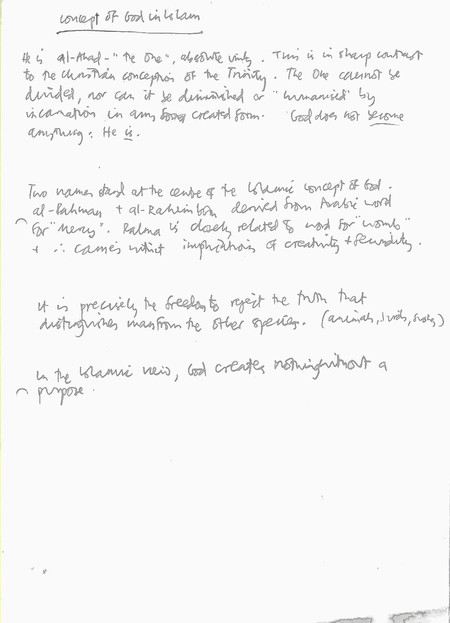 concept of God in Islam
He is al-Ahad - "the One", absolute unity. This is in sharp contrast
to the Christian conception of the Trinity. The One cannot be
divided, nor can it be diminished or "humanised" by
incarnation in any created form. God does not become
anything: He is.
Two names stand at the centre of the Islamic concept of God.
al-Rahman + al-Rahim both derived from Arabic word
for "Mercy". Rahma is closely related to word for "womb"
+ ∴ carries implications of creativity + fecundity.
It is precisely the freedom to reject the truth that
distinguishes man from the other species. (animals, birds,
In the Islamic view, God creates nothing without a
purpose.